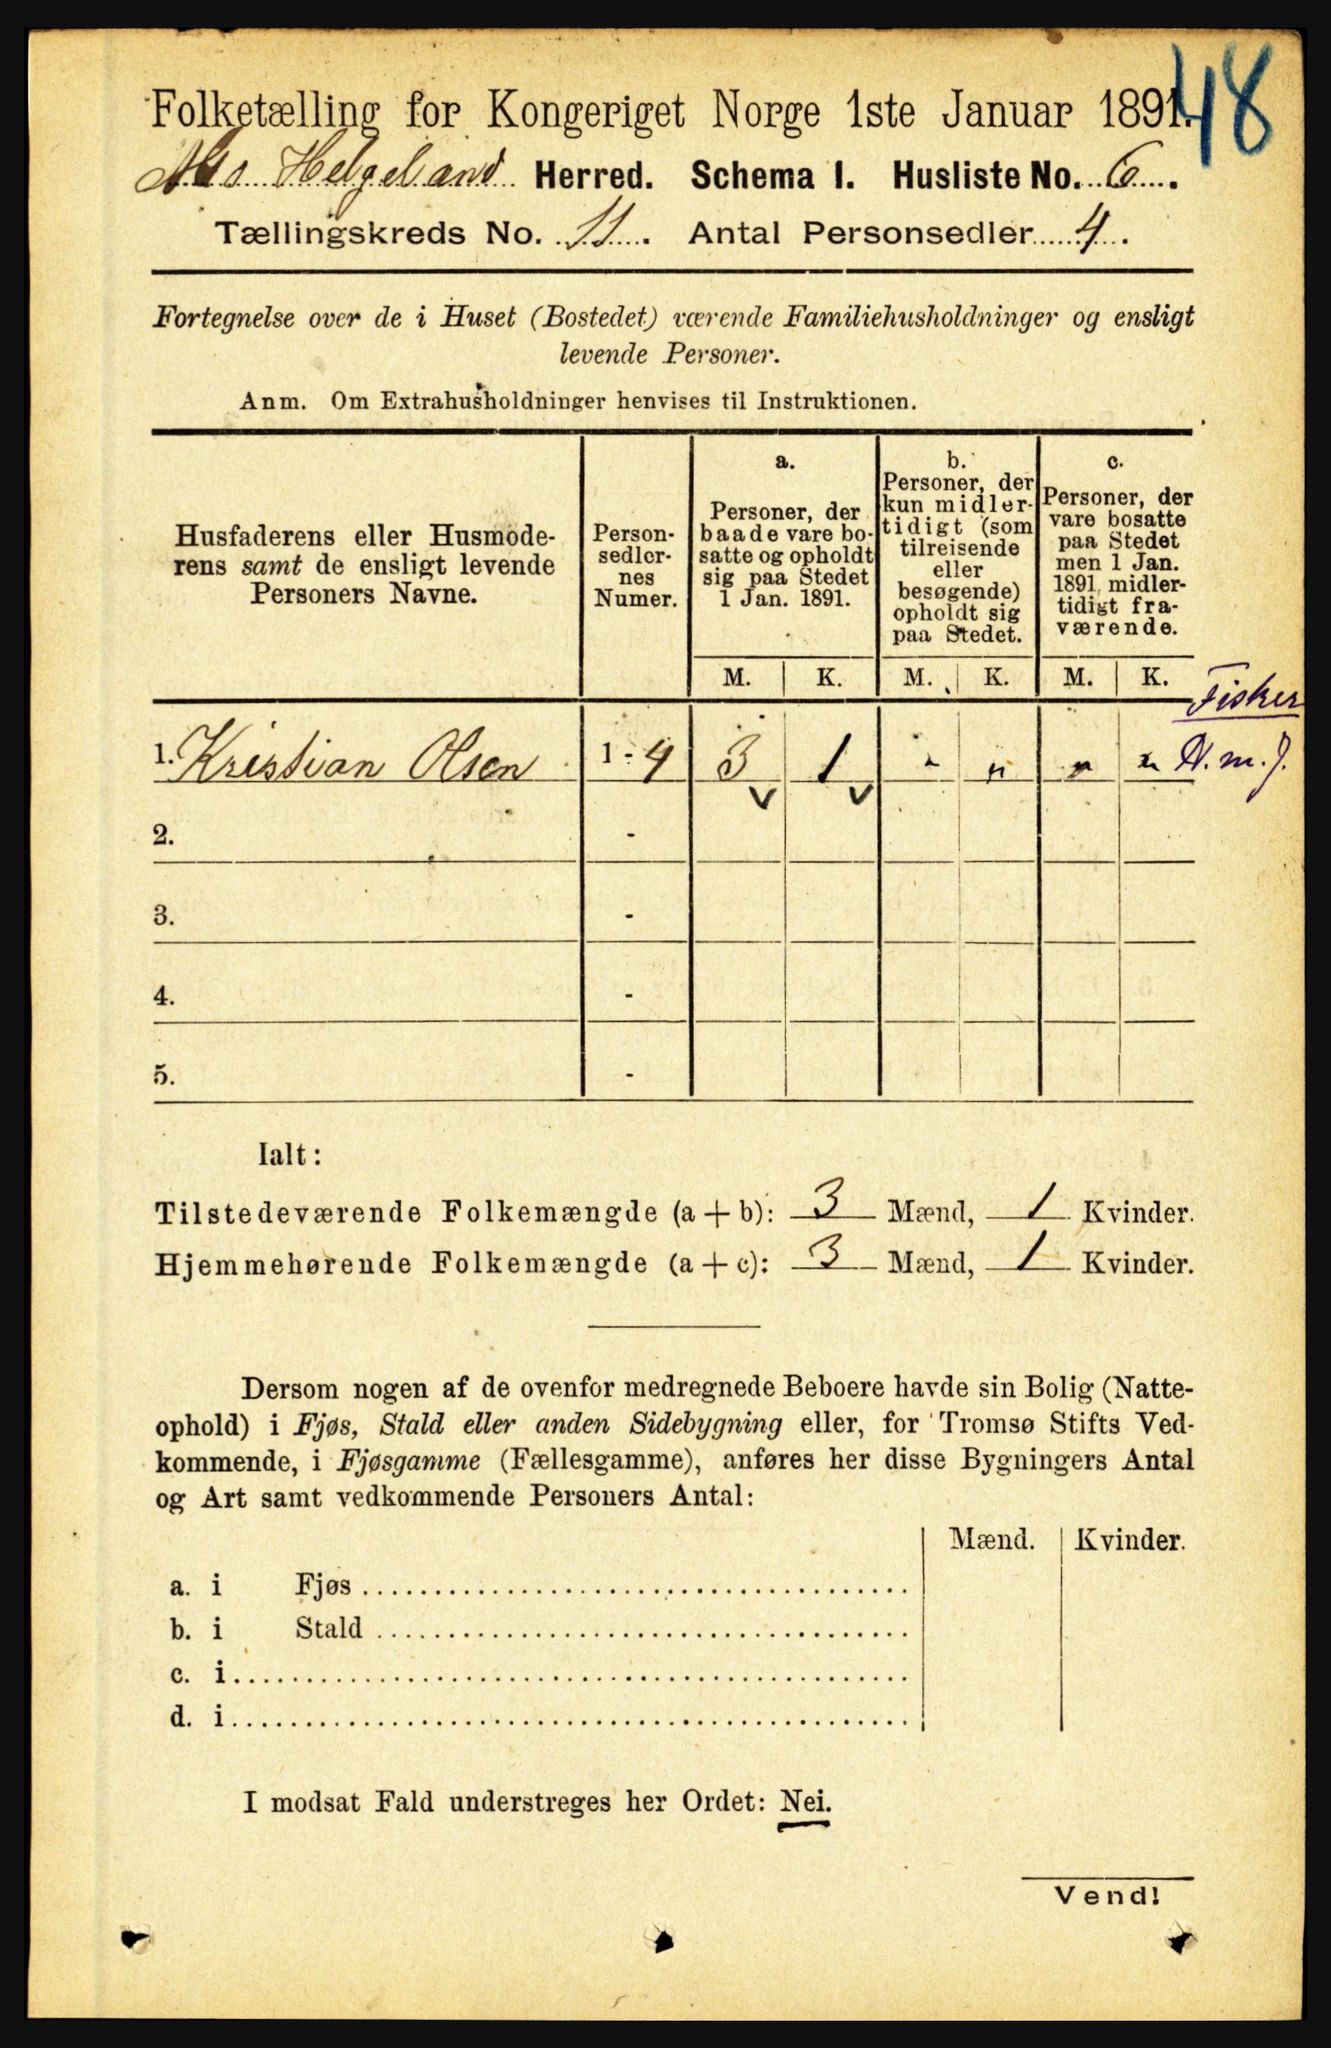 48
Folketælling for Kongeriget Norge 1ste Januar 1891.
Helgeland Herred. Schema 1. Husliste No. 6.
Tællingskreds No. 11. Antal Personsedler 4.
Fortegnelse over de i Huset (Bostedet) værende Familiehusholdninger og ensligt
levende Personer.
Anm. Om Extrahusholdninger henvises til Instruktionen.
Husfaderens eller Husmode-
rens samt de ensligt levende
Personers Navne.
Person-
sedler-
nes
Numer.
a.
Personer, der
baade vare bo-
satte og opholdt
sig paa Stedet
1 Jan. 1891.
b.
Personer, der
kun midler-
tidigt (som
tilreisende
eller
besøgende)
opholdt sig
paa Stedet.
c.
Personer, der
vare bosatte
paa Stedet
men 1 Jan.
1891 midler-
tidigt fra-
værende.
M. K. M. K. M. K.
Fisker
1. Kristian Olsen 1 - 4 3 1 " " " " N. m. J.
2. -
3. -
4. -
5. -
Ialt:
Tilstedeværende Folkemængde (a + b): 3 Mænd, 1 Kvinder.
Hjemmehørende Folkemængde (a + c): 3 Mænd, 1 Kvinder.
Dersom nogen af de ovenfor medregnede Beboere havde sin Bolig (Natte-
ophold) i Fjøs, Stald eller anden Sidebygning eller, for Tromsø Stifts Ved-
kommende, i Fjøsgamme (Fællesgamme), anføres her disse Bygningers Antal
og Art samt vedkommende Personers Antal:
Mænd. Kvinder.
a. i Fjøs
b. i Stald
c. i
d. i
I modsat Fald understreges her Ordet: Nei.
Vend!